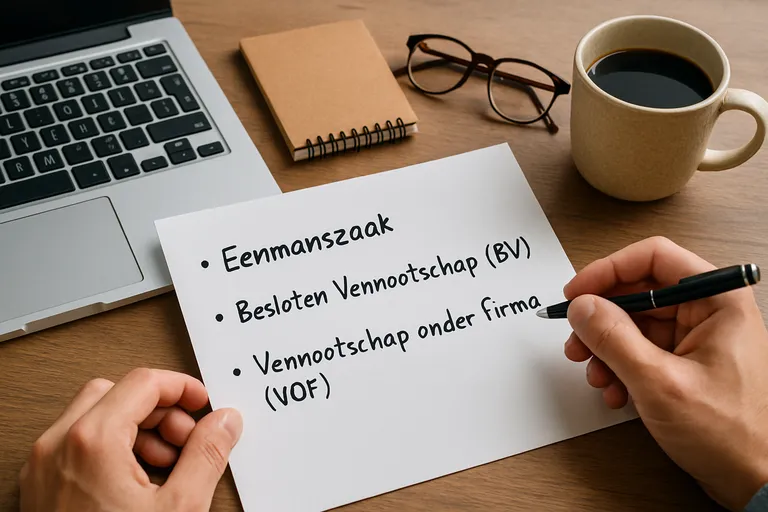 • Eenmanszaak
• Besloten Vennootschap (BV)
• Vennootschap onder firma
(VOF)